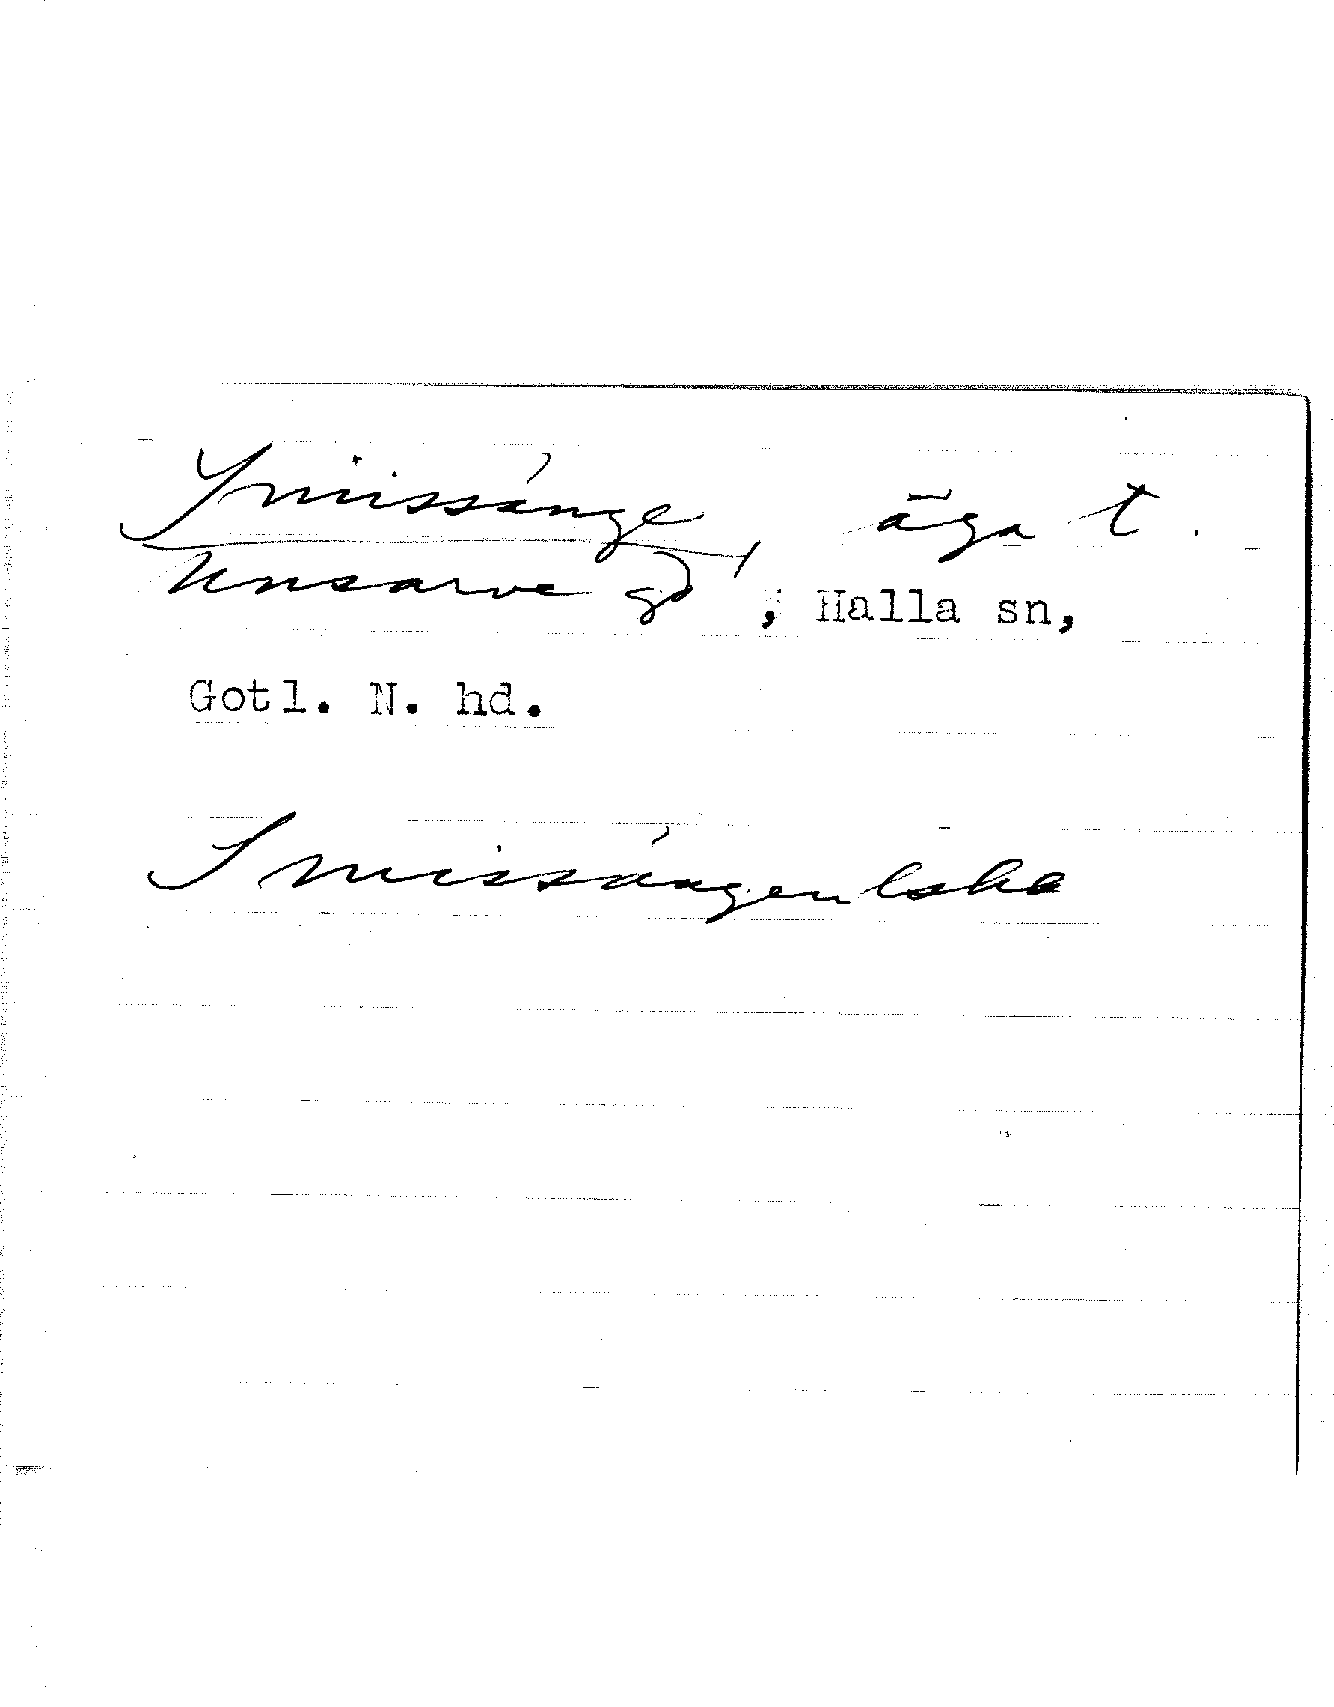 Smissänge, äga t.
Unsarve gd, Halla sn,
Gotl. N. hd.
Smissängen Lska